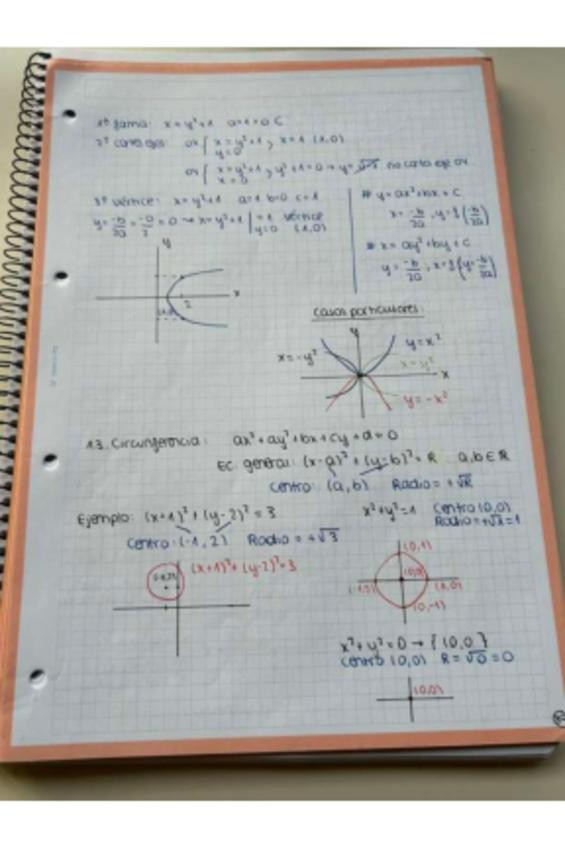 1º forma: x = y²+1 a=1>0 C
2º corta ejes: ox { x = y²+1 , x=1 (1,0)
y=0
oy { x = y²+1 , y²+1=0 → y=√-1 no corta eje oy
x=0
3º vértice: x = y²+1 a=1 b=0 c=1
y = -b/2a = -0/2 = 0 → x = y²+1 | =1 vértice
y=0 (1,0)
# y = ax²+bx+c
x = -b/2a , y = f(-b/2a)
# x = ay²+by+c
y = -b/2a ; x = f(y=-b/2a)
y
x
2
casos particulares:
y
x=-y²
y=x²
x=y²
x
y=-x²
1.3. Circunferencia: ax²+ay²+bx+cy+d=0
EC. general: (x-a)²+(y-b)²=R a,b∈R
Centro: (a,b) Radio=+√R
Ejemplo: (x+1)²+(y-2)²=3
Centro: (-1,2) Radio=+√3
(-1,2)
(x+1)²+(y-2)²=3
x²+y²=1 Centro (0,0)
Radio=+√1=1
(0,1)
(0,0)
(-1,0)
(1,0)
(0,-1)
x²+y²=0 → {(0,0)}
Centro (0,0) R=√0=0
(0,0)